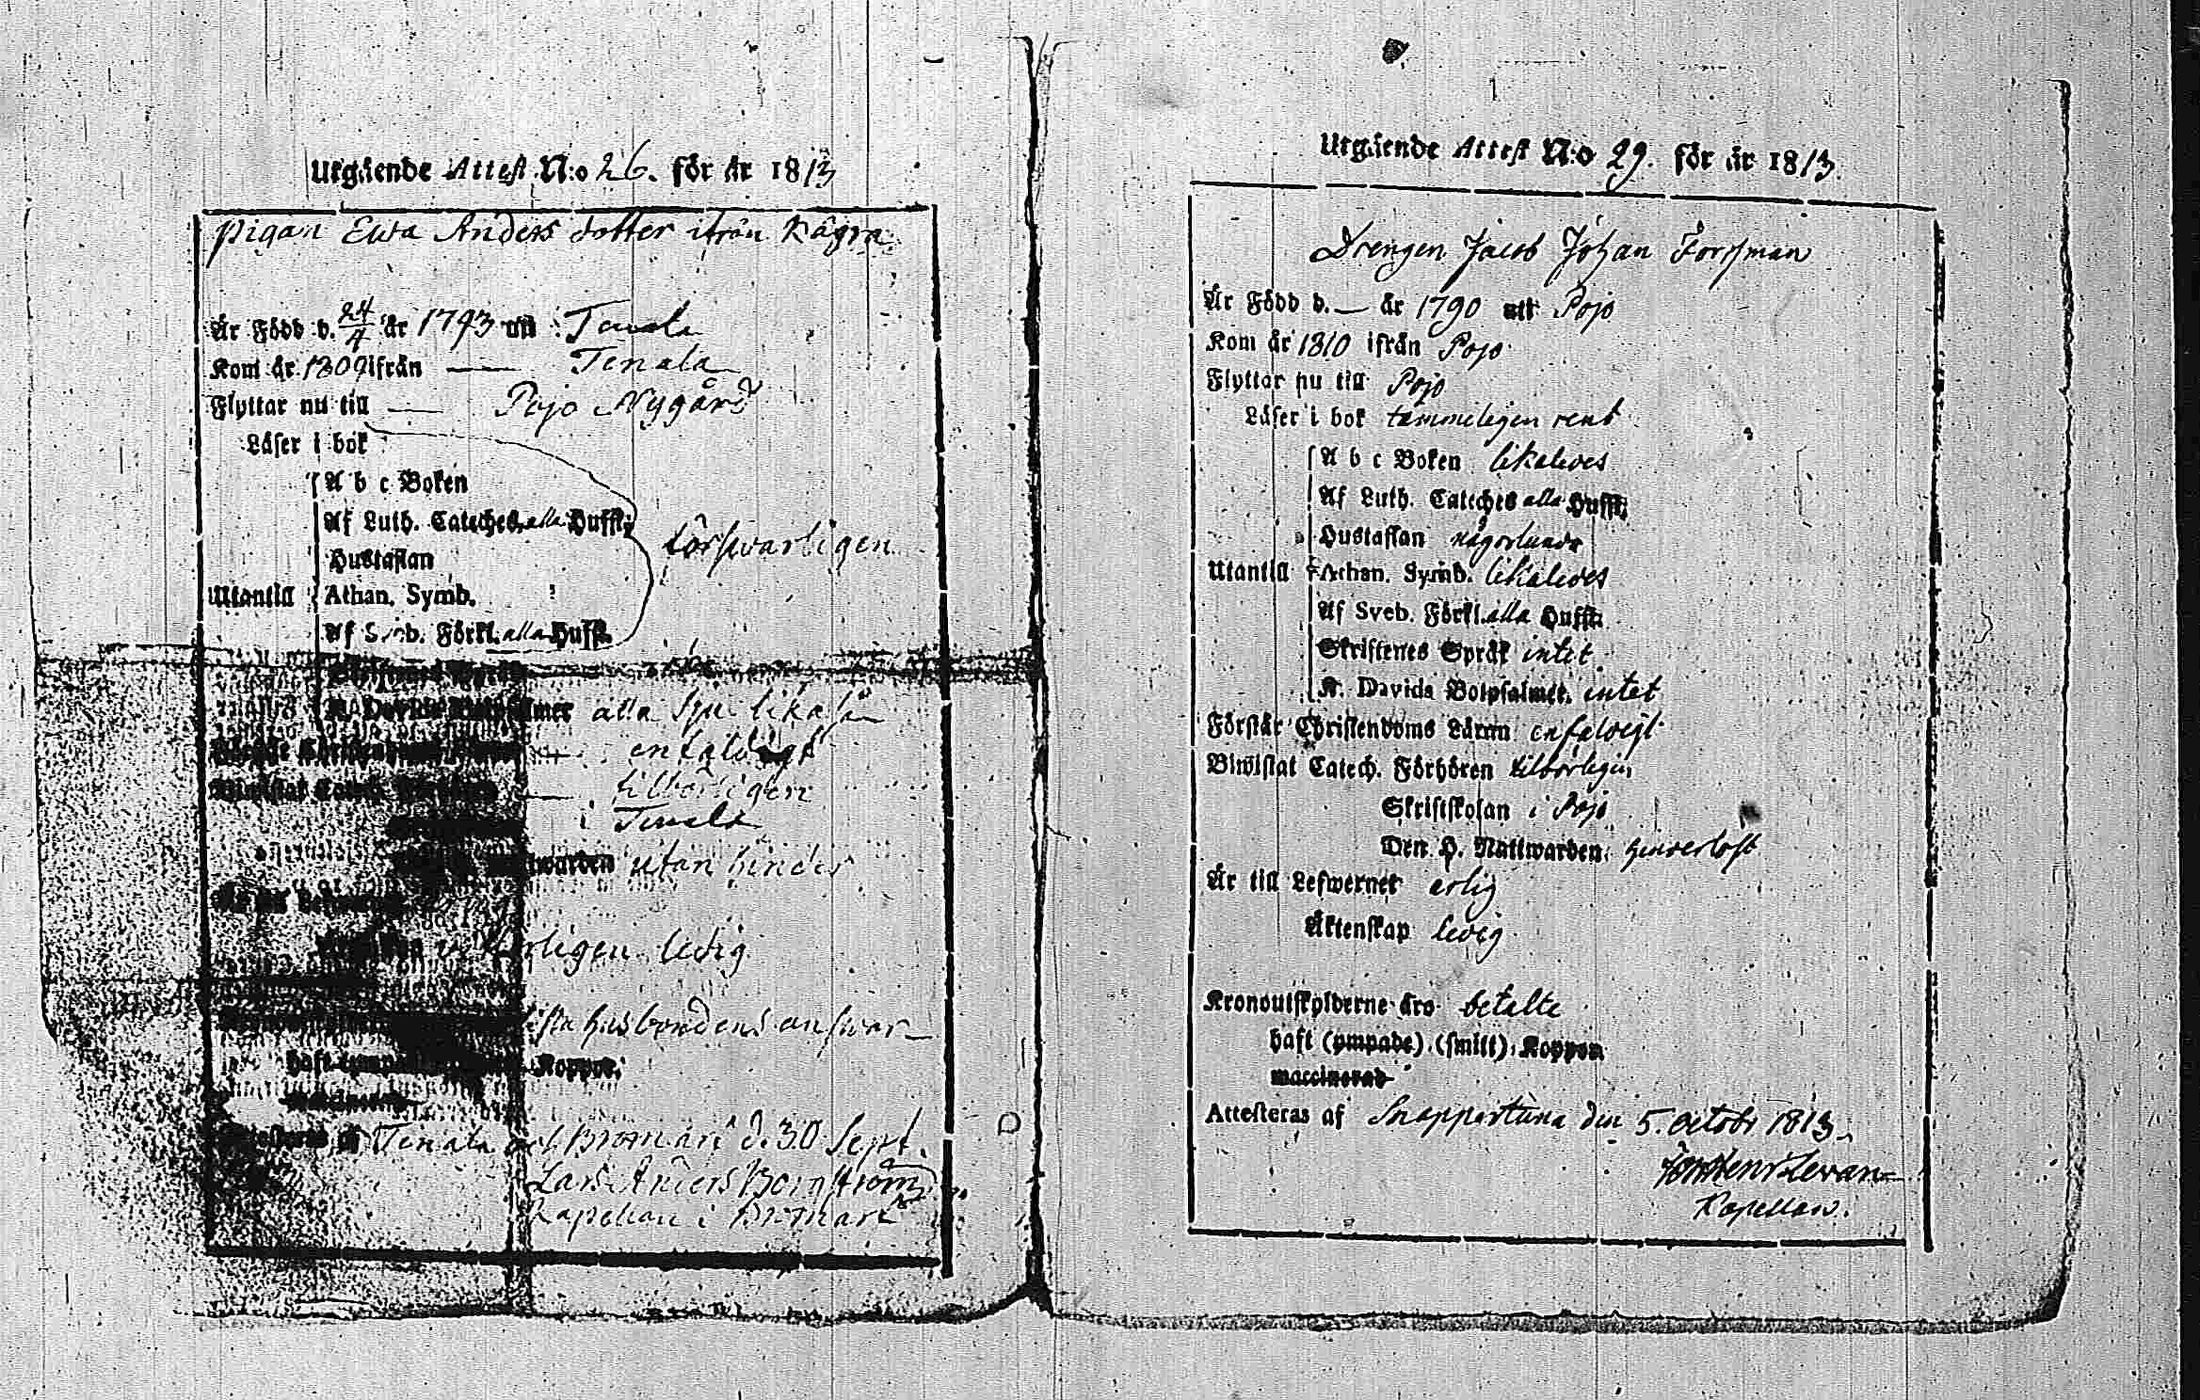 Utgående Attest N:o 26. för år 1813
Pigan Ewa Anders dotter ifrån Kågra
Är Född d. 24/4 år 1793 uti Tenala
Kom år 1809 ifrån — Tenala
Flyttar nu till — Pojo Nygård
Läser i bok
A b c Boken
Af Luth. Cateches alla Hufst.
försvarligen
Hustaflan
Utantill Athan. Symb.
Af Sveb. Förkl. alla Hufst.
alla sju lika så
— enfaldigt
— tilbörligen
i Tenala
utan hinder
Är till Lefwernet
ledig
husbondens answar
haft Koppor.
Attesteras af Tenala och Bromarf d. 30 Sept.
Lars Anders Bornström
Kapellan i Bromarf
Utgående Attest N:o 29. för år 1813.
Drengen Jacob Johan Forssman
Är Född d. — år 1790 uti Pojo
Kom år 1810 ifrån Pojo
Flyttar nu till Pojo
Läser i bok tämmeligen rent
A b c Boken likaledes
Af Luth. Cateches alla Hufst.
Hustaflan någorlunda
Utantill Athan. Symb. likaledes
Af Sveb. Förkl. alla Hufst.
Skriftenes Språk intet
K. Davids Botpsalmer. intet
Förstår Christendoms Läran enfaldigt
Biwistat Catech. Förhören tilbörligen
Skriftskolan i Pojo
Den H. Nattwarden hinderlöst
Är till Lefwernet ärlig
Äktenskap ledig
Kronoutskylderne äro betalte
haft (ympade) (smitt) Koppor
waccinerad
Attesteras af Snappertuna den 5. octobr 1813.
Kapellan.